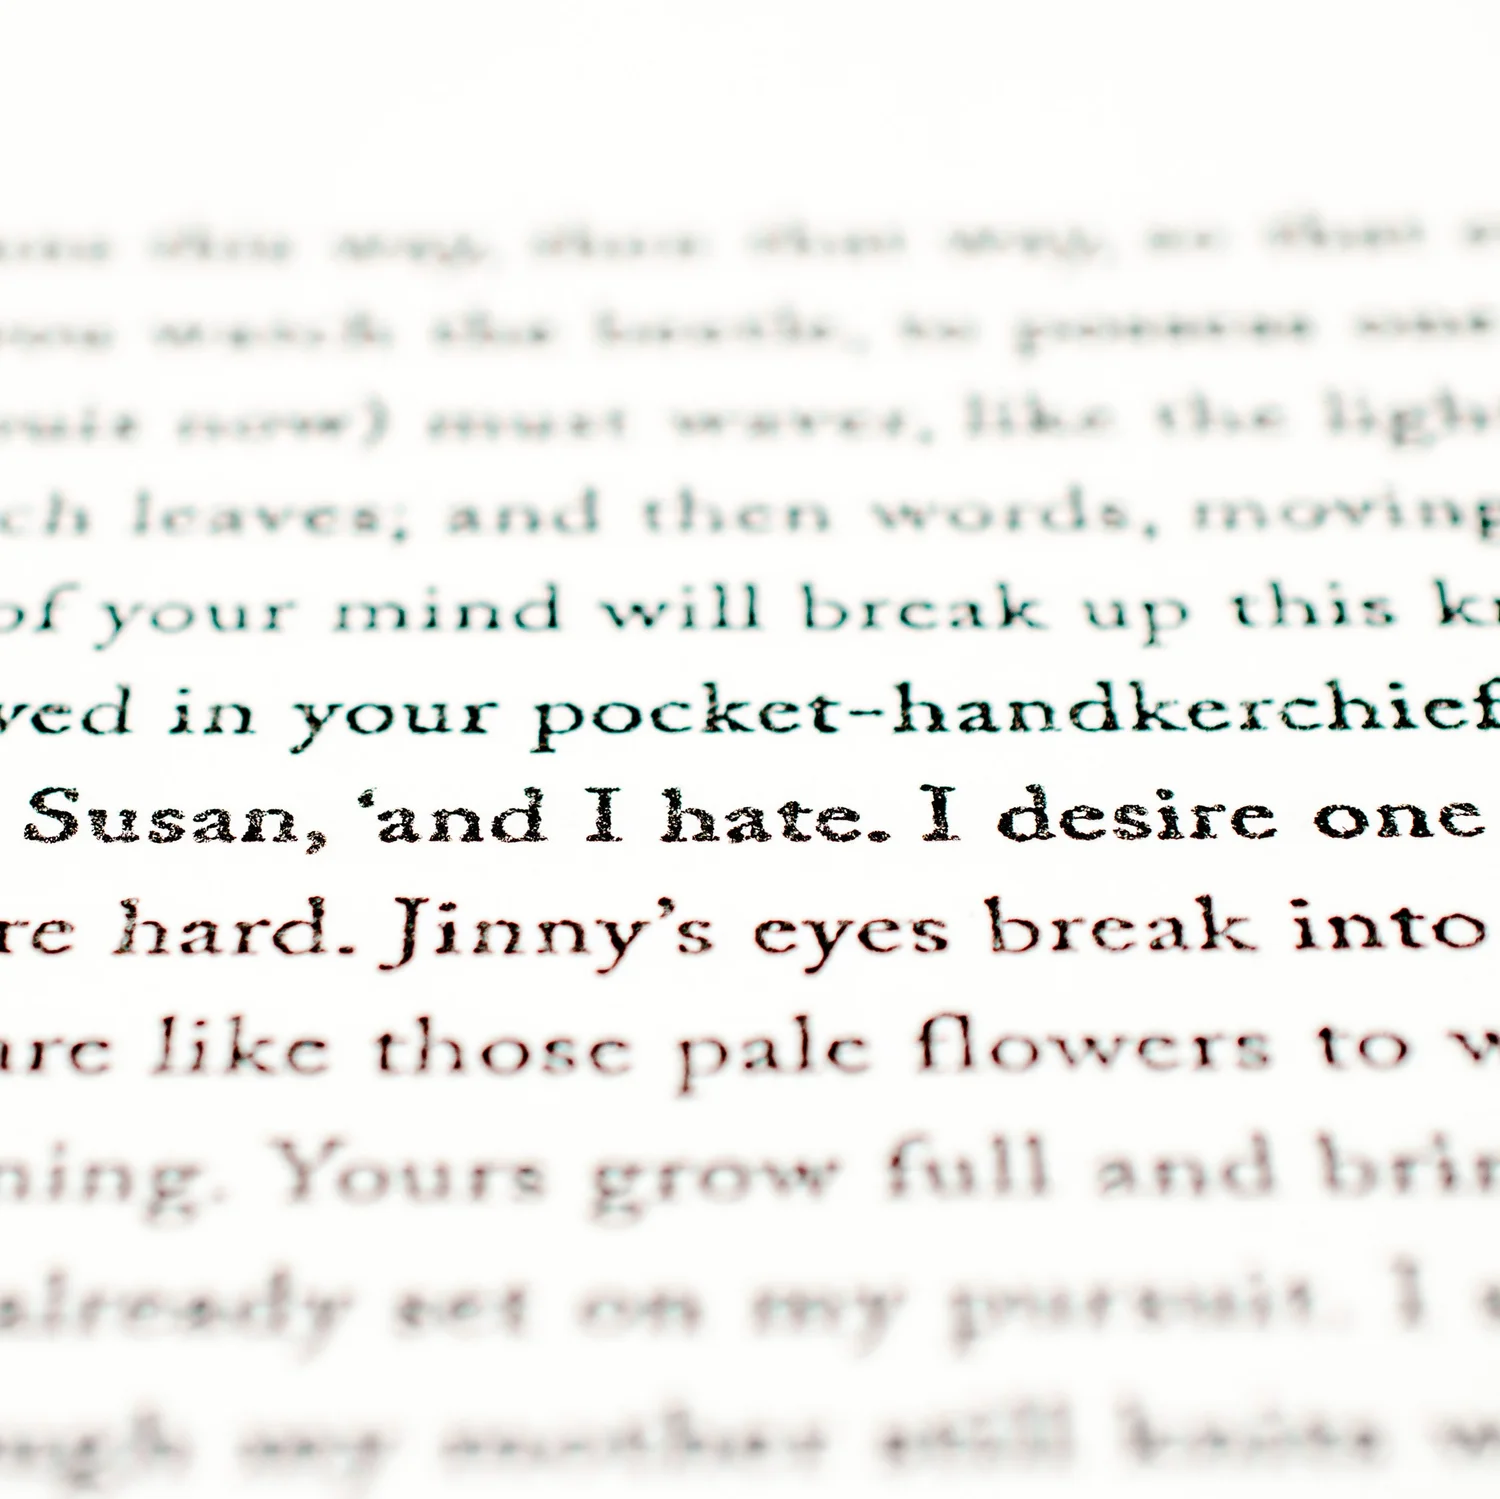 this way, then that way, so that
watch the beetle, to possess one
now) must waver, like the light
ch leaves; and then words, moving
of your mind will break up this
in your pocket-handkerchief
Susan, ‘and I hate. I desire one
re hard. Jinny’s eyes break into
are like those pale flowers to
ning. Yours grow full and
already set on my pursuit. I
my mother still knits